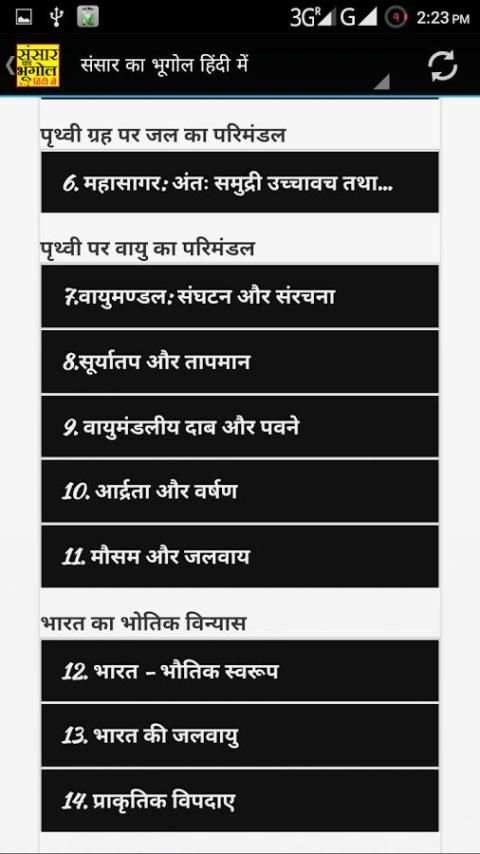 3G R G 2:23 PM
संसार का भूगोल हिंदी में
संसार का भूगोल हिंदी में
पृथ्वी ग्रह पर जल का परिमंडल
6. महासागर: अंतः समुद्री उच्चावच तथा...
पृथ्वी पर वायु का परिमंडल
7.वायुमण्डल: संघटन और संरचना
8.सूर्यातप और तापमान
9. वायुमंडलीय दाब और पवने
10. आर्द्रता और वर्षण
11. मौसम और जलवाय
भारत का भोतिक विन्यास
12. भारत - भौतिक स्वरूप
13. भारत की जलवायु
14. प्राकृतिक विपदाए